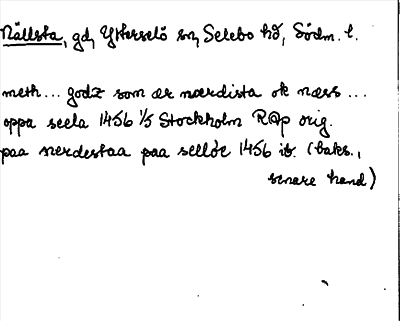 Nällsta, gd, Ytterselö sn, Selebo hd, Södm. l.
meth... godz som ær nærdista ok næss...
oppa seela 1456 1/5 Stockholm RAp orig.
paa nerdestaa paa selløe 1456 ib. (baks.,
senare hand)